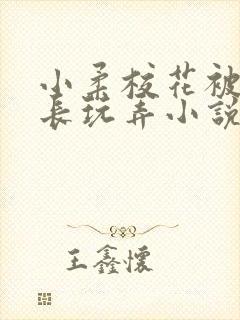 小柔校花被
长玩弄小説
王鑫懷